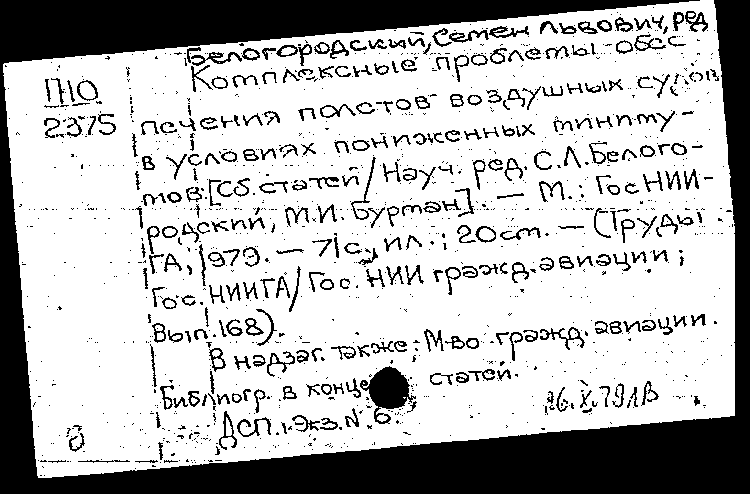 Белогородский, Семен Львович, ред
Комплексные проблемы обес
П10
2375
печения полетов воздушных судов
в условиях пониженных миниму-
мов. [Сб. статей / Науч. ред. С.Л. Белого-
родский, М.И. Буртан]. — М.: ГосНИИ-
ГА, 1979. — 71 с., ил.; 20 см. — (Труды
Гос. НИИГА / Гос. НИИ гражд. авиации;
Вып. 168).
В надзаг. также: М-во гражд. авиации.
Библиогр. в конце статей.
ДСП. Экз. N 6.
26.X.79